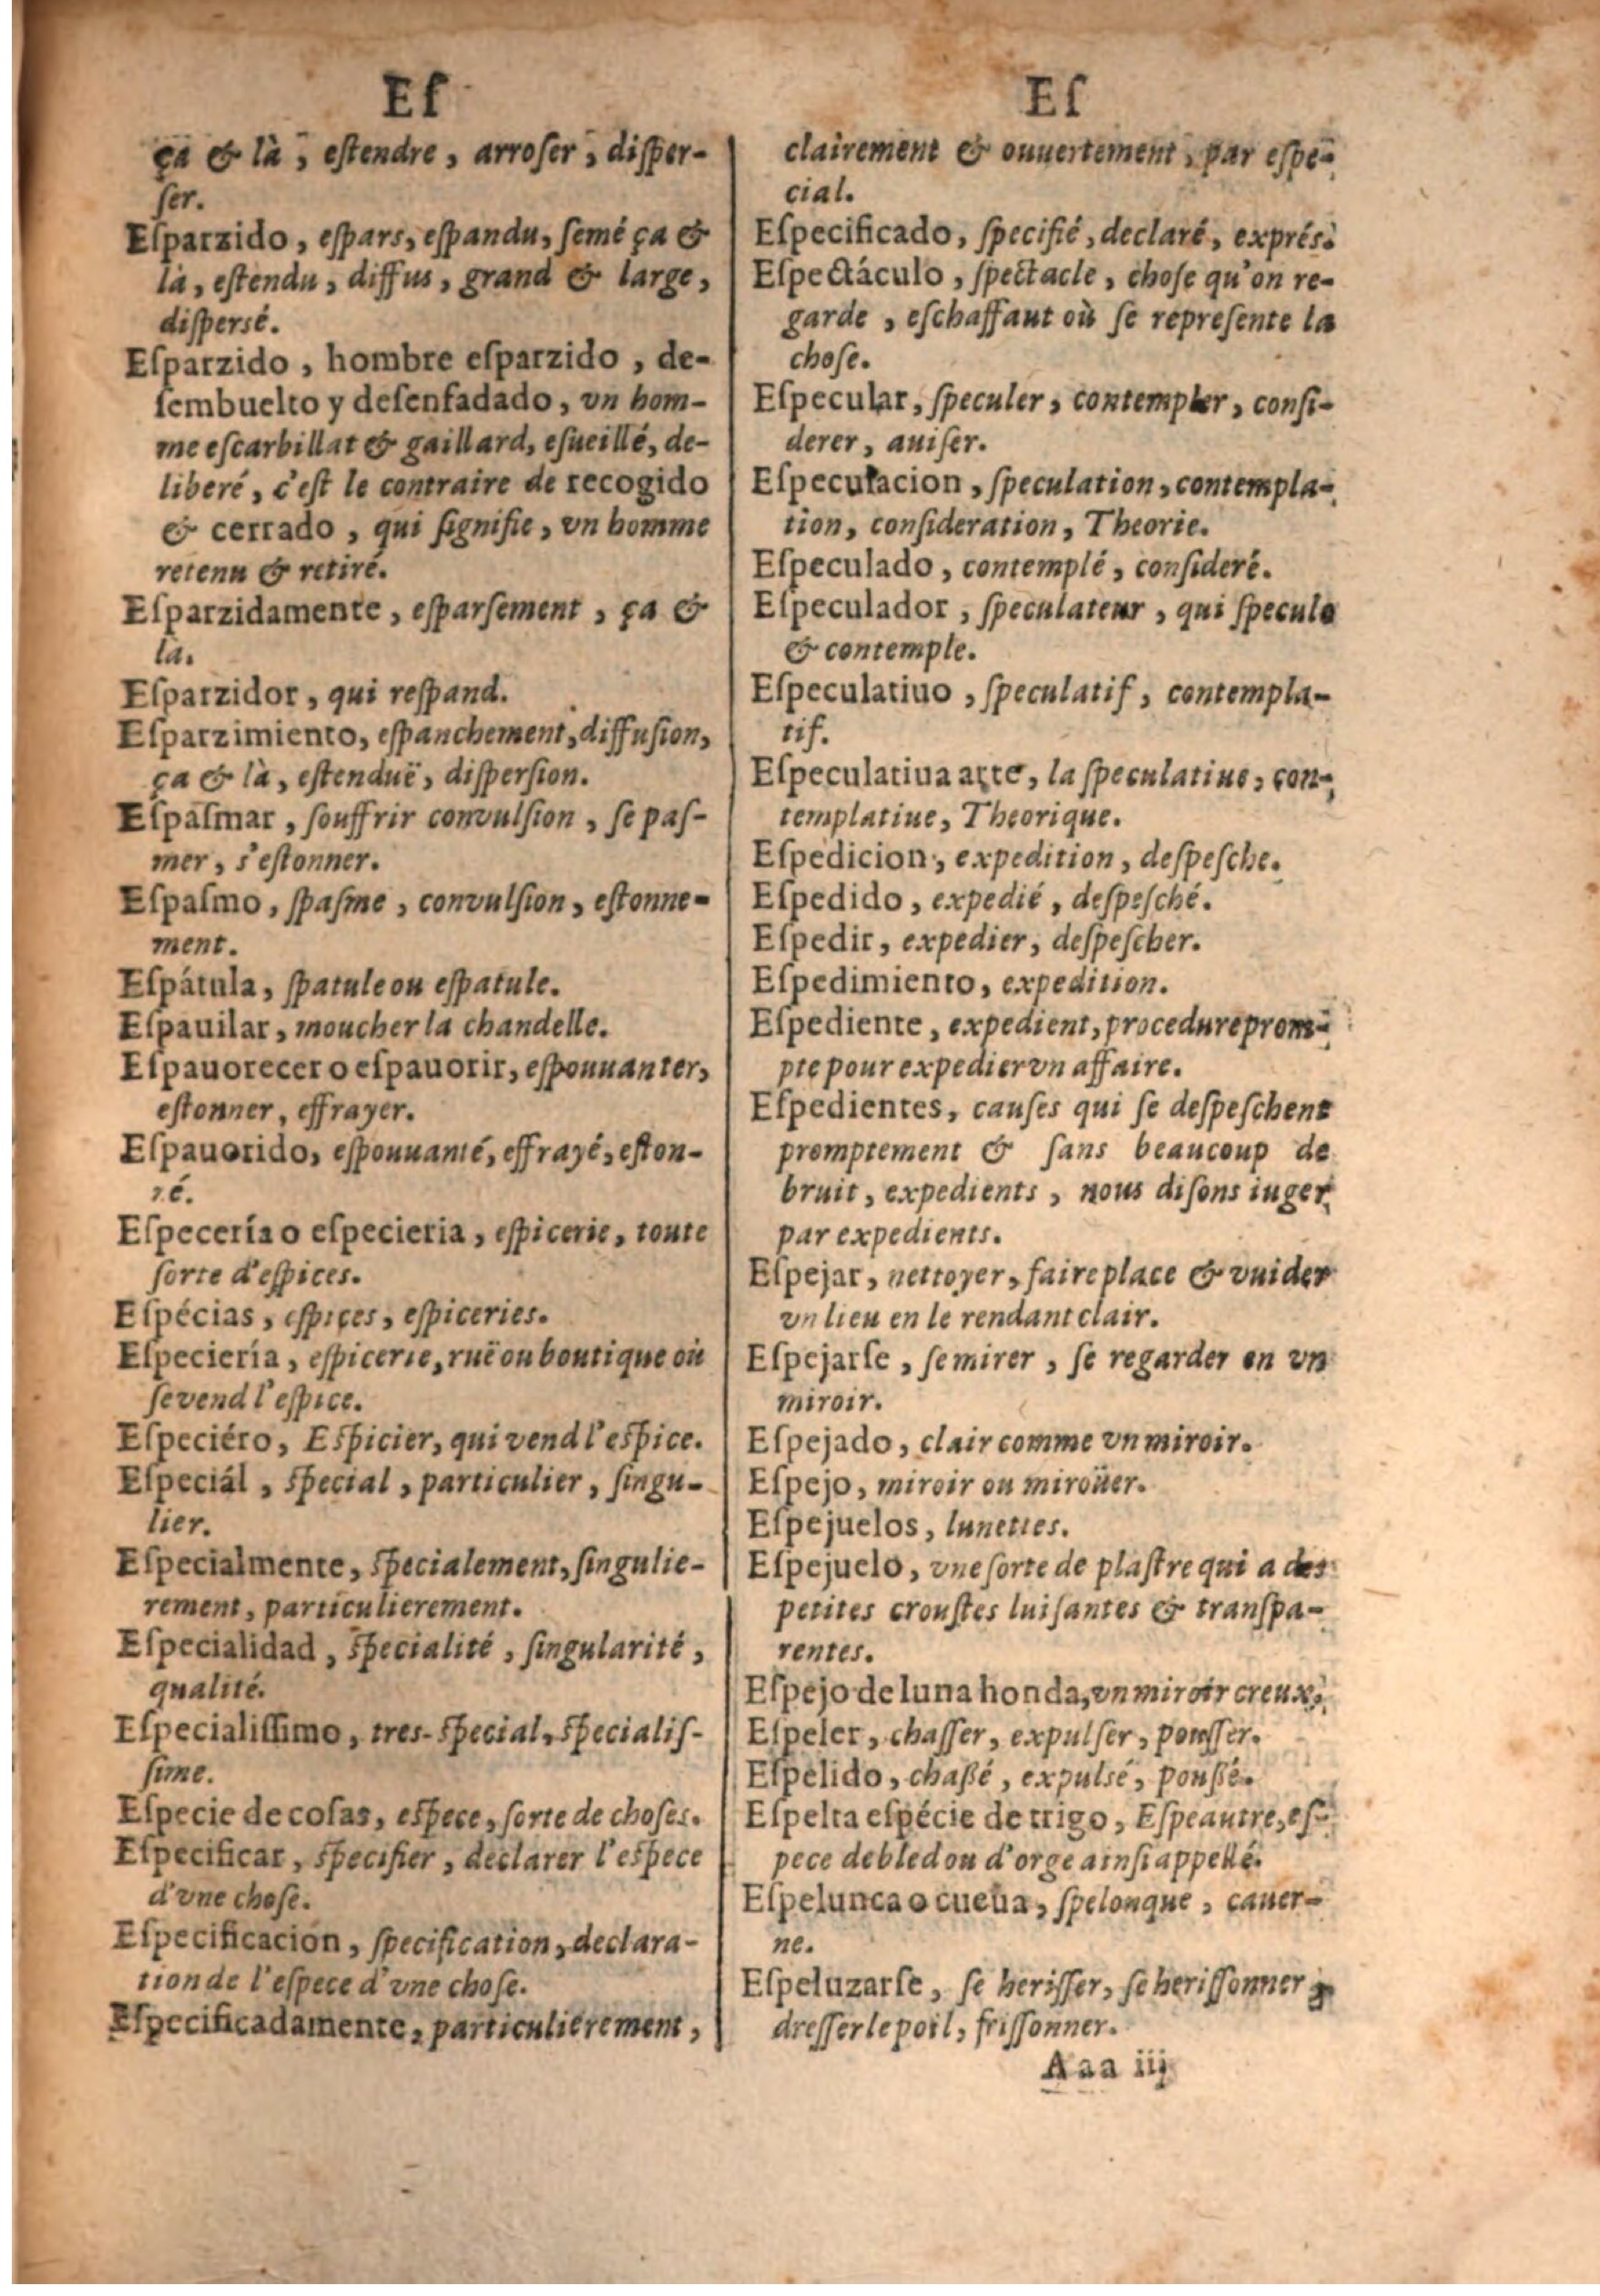 Eſ
ça & là, eſtendre, arroſer, diſper-
ſer.
Eſparzido, eſpars, eſpandu, ſemé ça &
là, eſtendu, diffus, grand & large,
diſpersé.
Eſparzido, hombre eſparzido, de-
ſembuelto y deſenfadado, vn hom-
me eſcarbillat & gaillard, eſueillé, de-
liberé, c'eſt le contraire de recogido
& cerrado, qui ſignifie, vn homme
retenu & retiré.
Eſparzidamente, eſparſement, ça &
la.
Eſparzidor, qui reſpand.
Eſparzimiento, eſpanchement, diffuſion,
ça & là, eſtenduë, diſperſion.
Eſpaſmar, ſouffrir convulſion, ſe paſ-
mer, s'eſtonner.
Eſpaſmo, ſpaſme, convulſion, eſtonne-
ment.
Eſpátula, ſpatule ou eſpatule.
Eſpauilar, moucher la chandelle.
Eſpauorecer o eſpauorir, eſpouuanter,
eſtonner, effrayer.
Eſpauorido, eſpouuanté, effrayé, eſton-
né.
Eſpecería o eſpecieria, eſpicerie, toute
ſorte d'eſpices.
Eſpécias, eſpices, eſpiceries.
Eſpeciería, eſpicerie, ruë ou boutique où
ſe vend l'eſpice.
Eſpeciéro, Eſpicier, qui vend l'eſpice.
Eſpeciál, ſpecial, particulier, ſingu-
lier.
Eſpecialmente, ſpecialement, ſingulie-
rement, particulierement.
Eſpecialidad, ſpecialité, ſingularité,
qualité.
Eſpecialiſſimo, tres-ſpecial, ſpecialiſ-
ſime.
Eſpecie de coſas, eſpece, ſorte de choſes.
Eſpecificar, ſpecifier, declarer l'eſpece
d'vne choſe.
Eſpecificación, ſpecification, declara-
tion de l'eſpece d'vne choſe.
Eſpecificadamente, particulierement,
Eſ
clairement & ouuertement, par eſpe-
cial.
Eſpecificado, ſpecifié, declaré, exprés.
Eſpectáculo, ſpectacle, choſe qu'on re-
garde, eſchaffaut où ſe repreſente la
choſe.
Eſpecular, ſpeculer, contempler, conſi-
derer, auiſer.
Eſpeculacion, ſpeculation, contempla-
tion, conſideration, Theorie.
Eſpeculado, contemplé, conſideré.
Eſpeculador, ſpeculateur, qui ſpecule
& contemple.
Eſpeculatiuo, ſpeculatif, contempla-
tif.
Eſpeculatiua arte, la ſpeculatiue, con-
templatiue, Theorique.
Eſpedicion, expedition, deſpeſche.
Eſpedido, expedié, deſpeſché.
Eſpedir, expedier, deſpeſcher.
Eſpedimiento, expedition.
Eſpediente, expedient, procedure prom-
pte pour expedier vn affaire.
Eſpedientes, cauſes qui ſe deſpeſchent
promptement & ſans beaucoup de
bruit, expedients, nous diſons iuger
par expedients.
Eſpejar, nettoyer, faire place & vuider
vn lieu en le rendant clair.
Eſpejarſe, ſe mirer, ſe regarder en vn
miroir.
Eſpejado, clair comme vn miroir.
Eſpejo, miroir ou miroüer.
Eſpejuelos, lunettes.
Eſpejuelo, vne ſorte de plaſtre qui a des
petites crouſtes luiſantes & tranſpa-
rentes.
Eſpejo de luna honda, vn miroir creux.
Eſpeler, chaſſer, expulſer, pouſſer.
Eſpelido, chaßé, expulsé, poußé.
Eſpelta eſpécie de trigo, Eſpeautre, eſ-
pece de bled ou d'orge ainſi appellé.
Eſpelunca o cueua, ſpelonque, cauer-
ne.
Eſpeluzarſe, ſe heriſſer, ſe heriſſonner,
dreſſer le poil, friſſonner.
Aaa iij